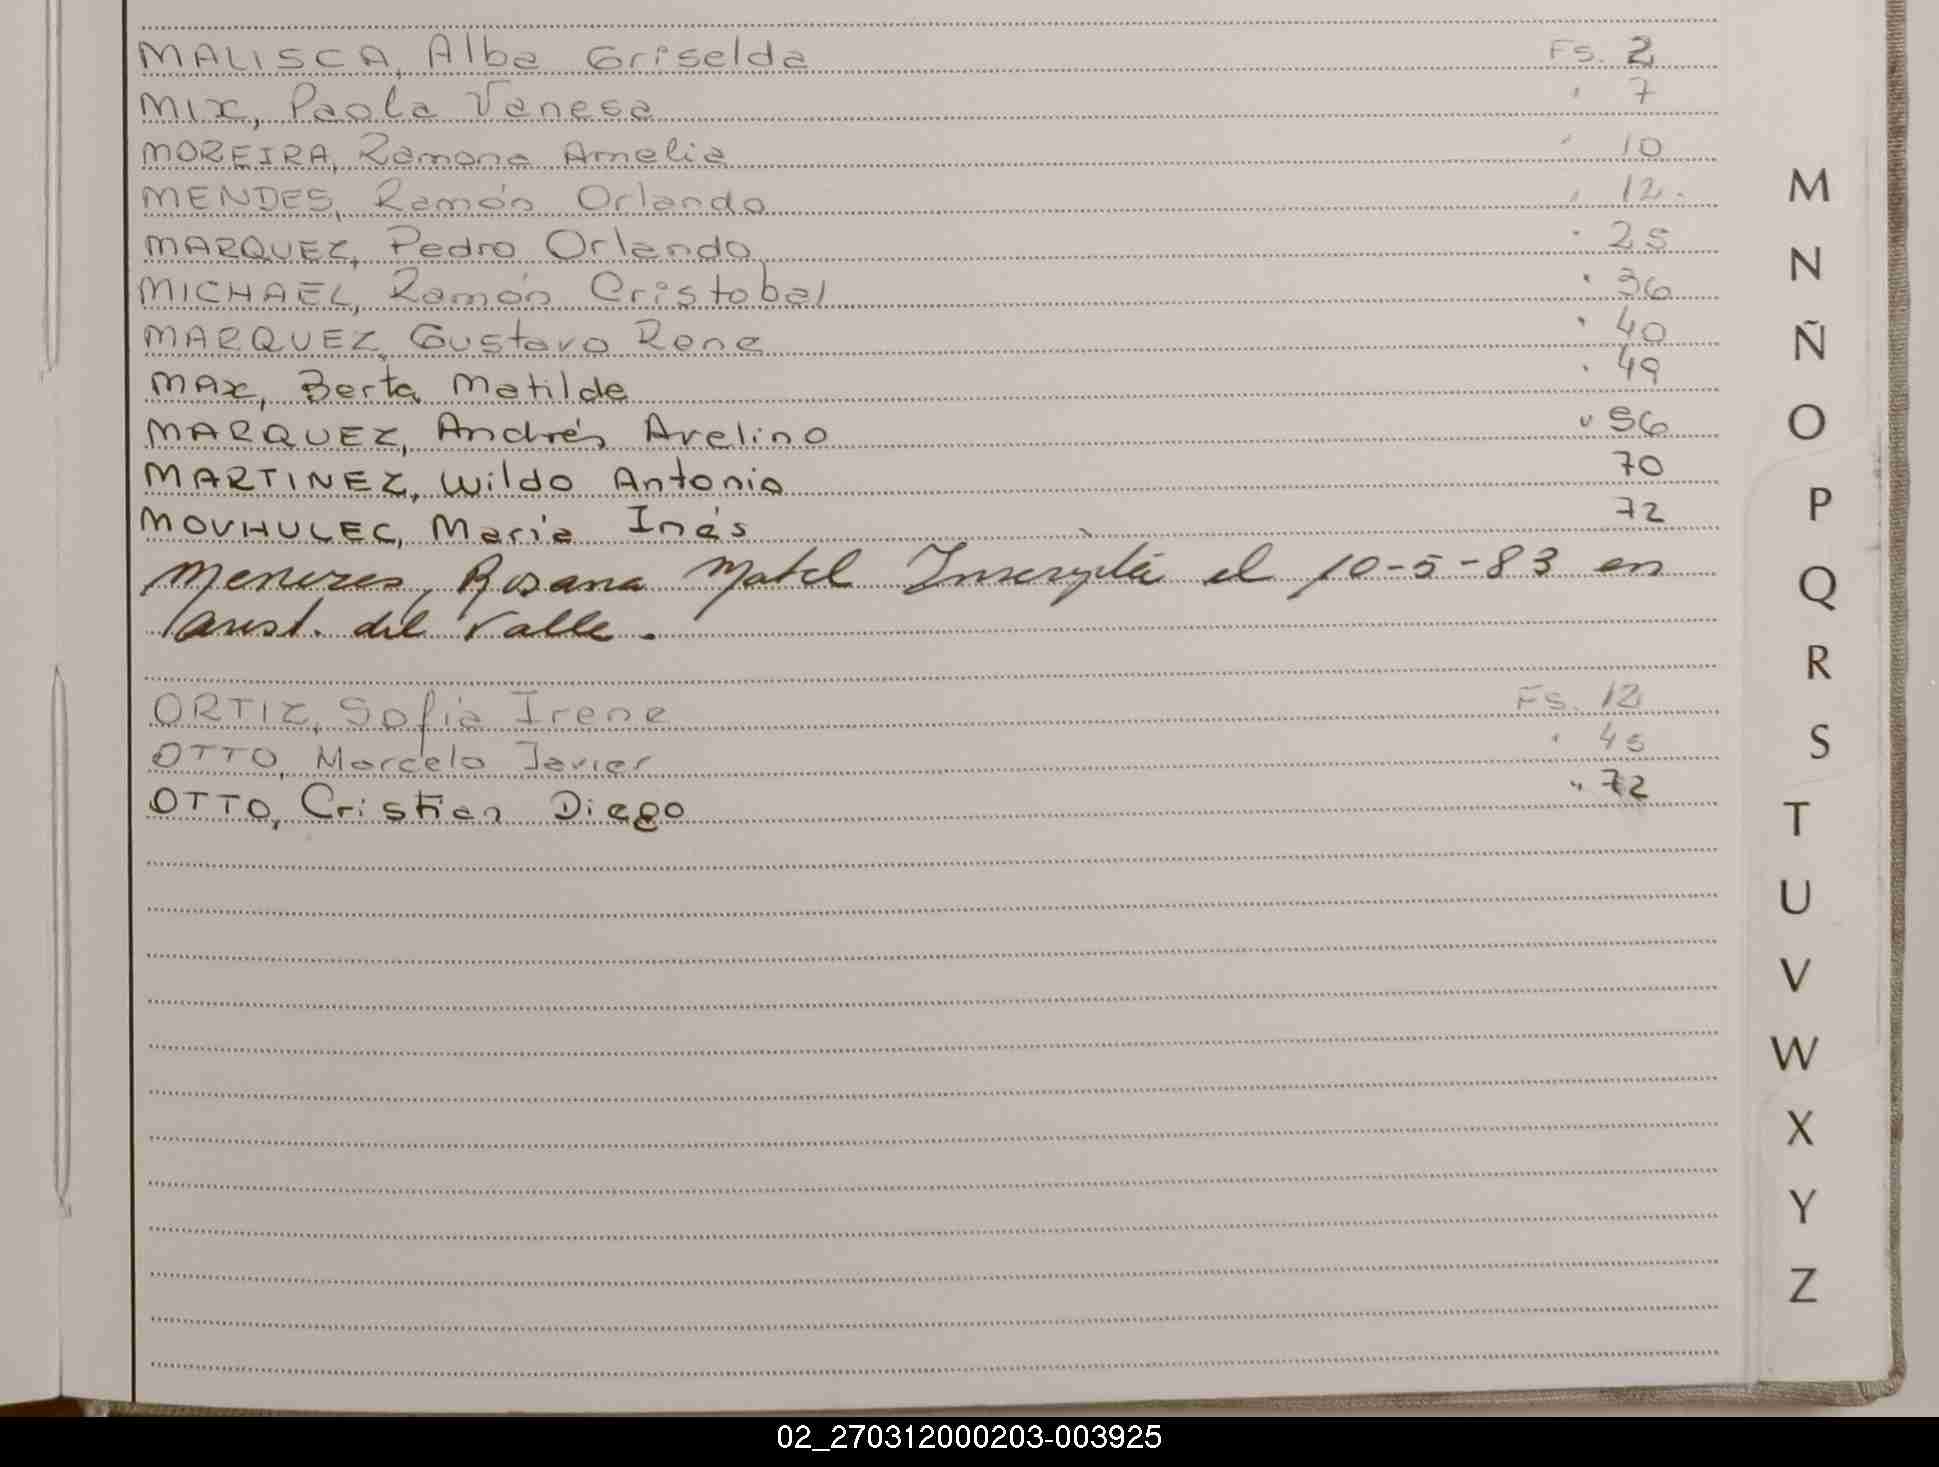 MALISCA, Alba Griselda Fs. 2
MIX, Paola Vanesa " 7
MOREIRA, Ramona Amelia " 10
MENDES, Ramón Orlando " 12.
MARQUEZ, Pedro Orlando " 25
MICHAEL, Ramón Cristobal " 36
MARQUEZ, Gustavo Rene " 40
MAX, Berta Matilde " 49
MARQUEZ, Andrés Avelino " 56
MARTINEZ, Wildo Antonio 70
MOVHULEC, María Inés 72
Menezes, Rosana Mabel Inscripta el 10-5-83 en
Arist. del Valle.
ORTIZ, Sofia Irene Fs. 12
OTTO, Marcelo Javier " 45
OTTO, Cristian Diego " 72
M
N
Ñ
O
P
Q
R
S
T
U
V
W
X
Y
Z
02_270312000203-003925